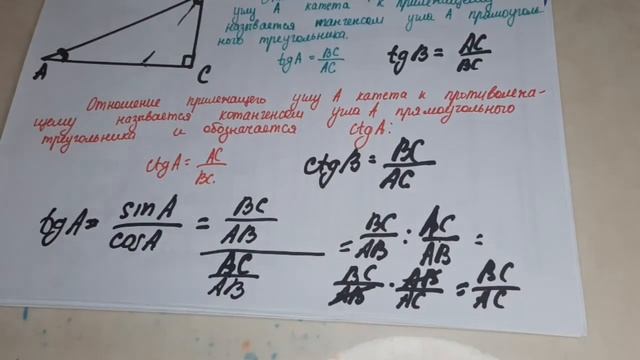 углу А катета к прилежащему
называется тангенсом угла А прямоуголь-
ного треугольника.
tgA = BC/AC
tgB = AC/BC
A
C
Отношение прилежащего углу А катета к противолежа-
щему называется котангенсом угла А прямоугольного
треугольника и обозначается ctgA:
ctgA = AC/BC.
ctgB = BC/AC
tgA = sinA/cosA = BC/AB / BC/AB = BC/AB : AC/AB =
BC/AB · AB/AC = BC/AC